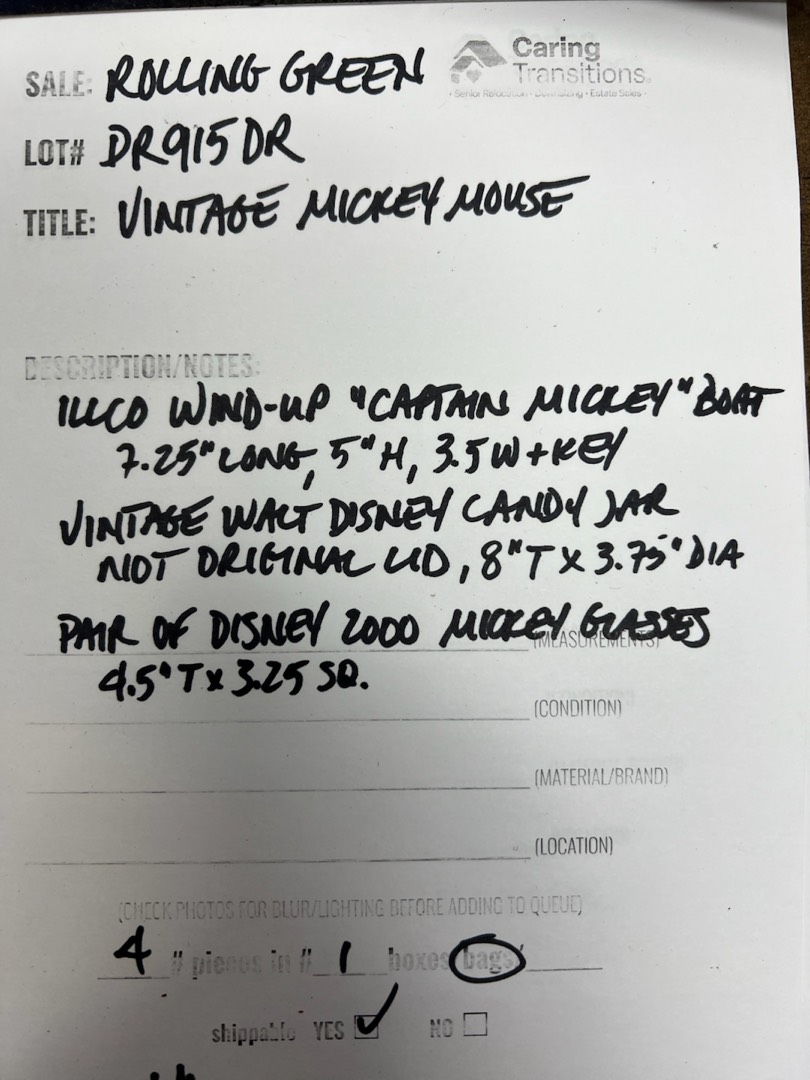 SALE: ROLLING GREEN
Caring
Transitions
LOT# DR915DR
TITLE: VINTAGE MICKEY MOUSE
DESCRIPTION/NOTES:
ILLCO WIND-UP "CAPTAIN MICKEY" BOAT
7.25" LONG, 5" H, 3.5 W + KEY
VINTAGE WALT DISNEY CANDY JAR
NOT ORIGINAL LID, 8" T X 3.75" DIA
PAIR OF DISNEY 2000 MICKEY GLASSES
(MEASUREMENTS)
4.5" T x 3.25 SQ.
(CONDITION)
(MATERIAL/BRAND)
(LOCATION)
(CHECK PHOTOS FOR BLUR/LIGHTING BEFORE ADDING TO QUEUE)
4 # pieces in # 1 boxes bags/
shippable YES NO